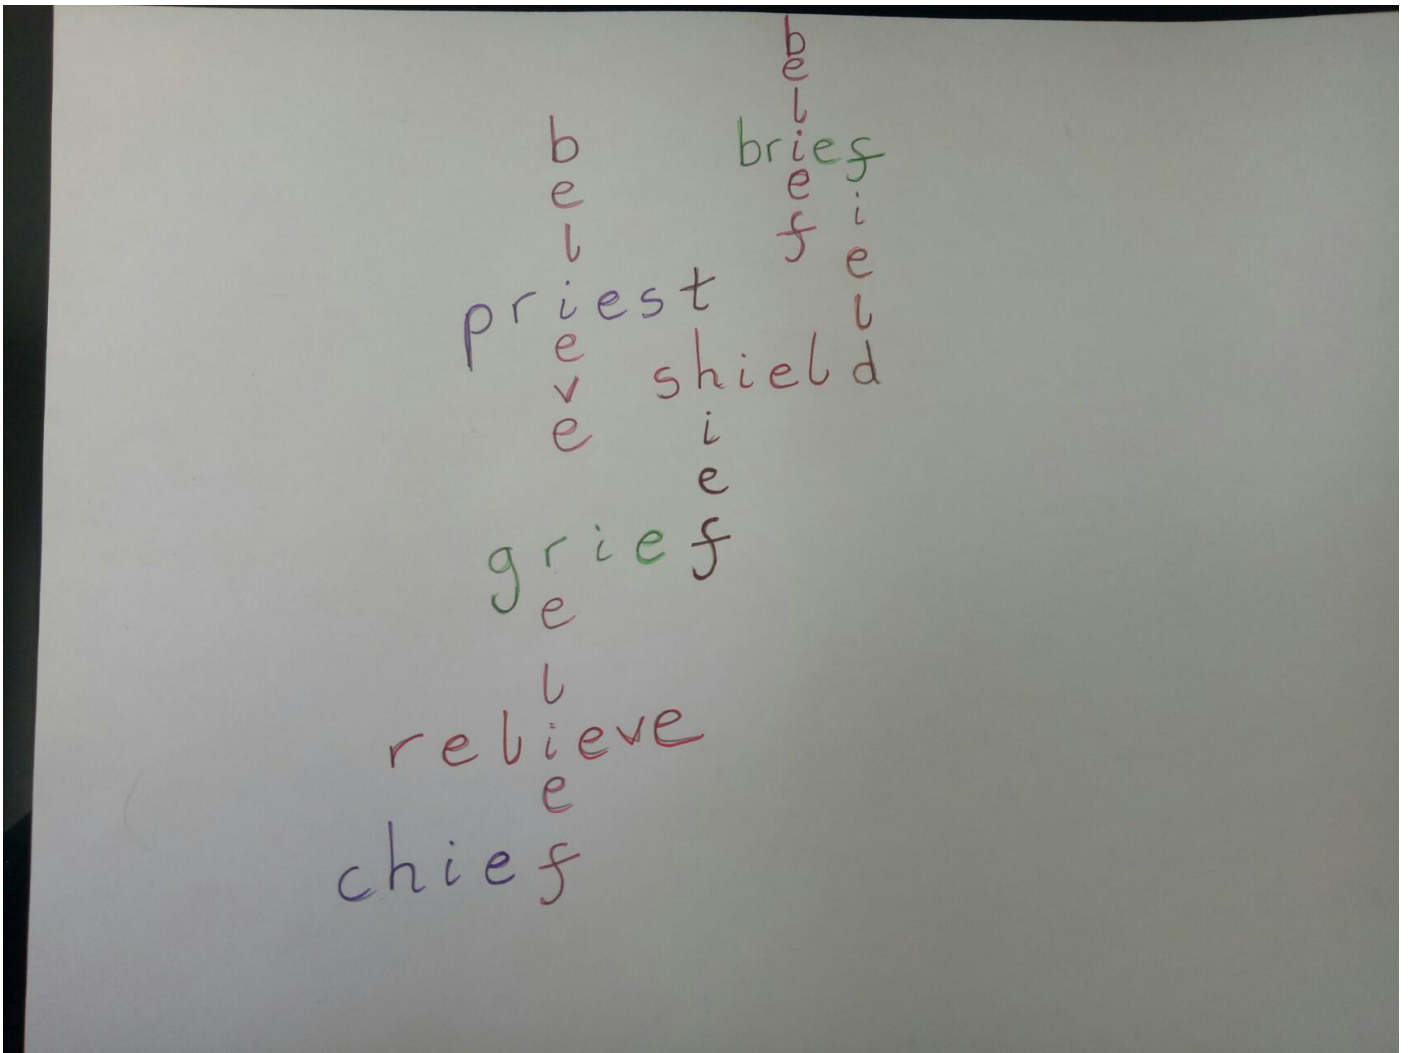 belief
brief
field
believe
priest
shield
thief
grief
relief
relieve
chief